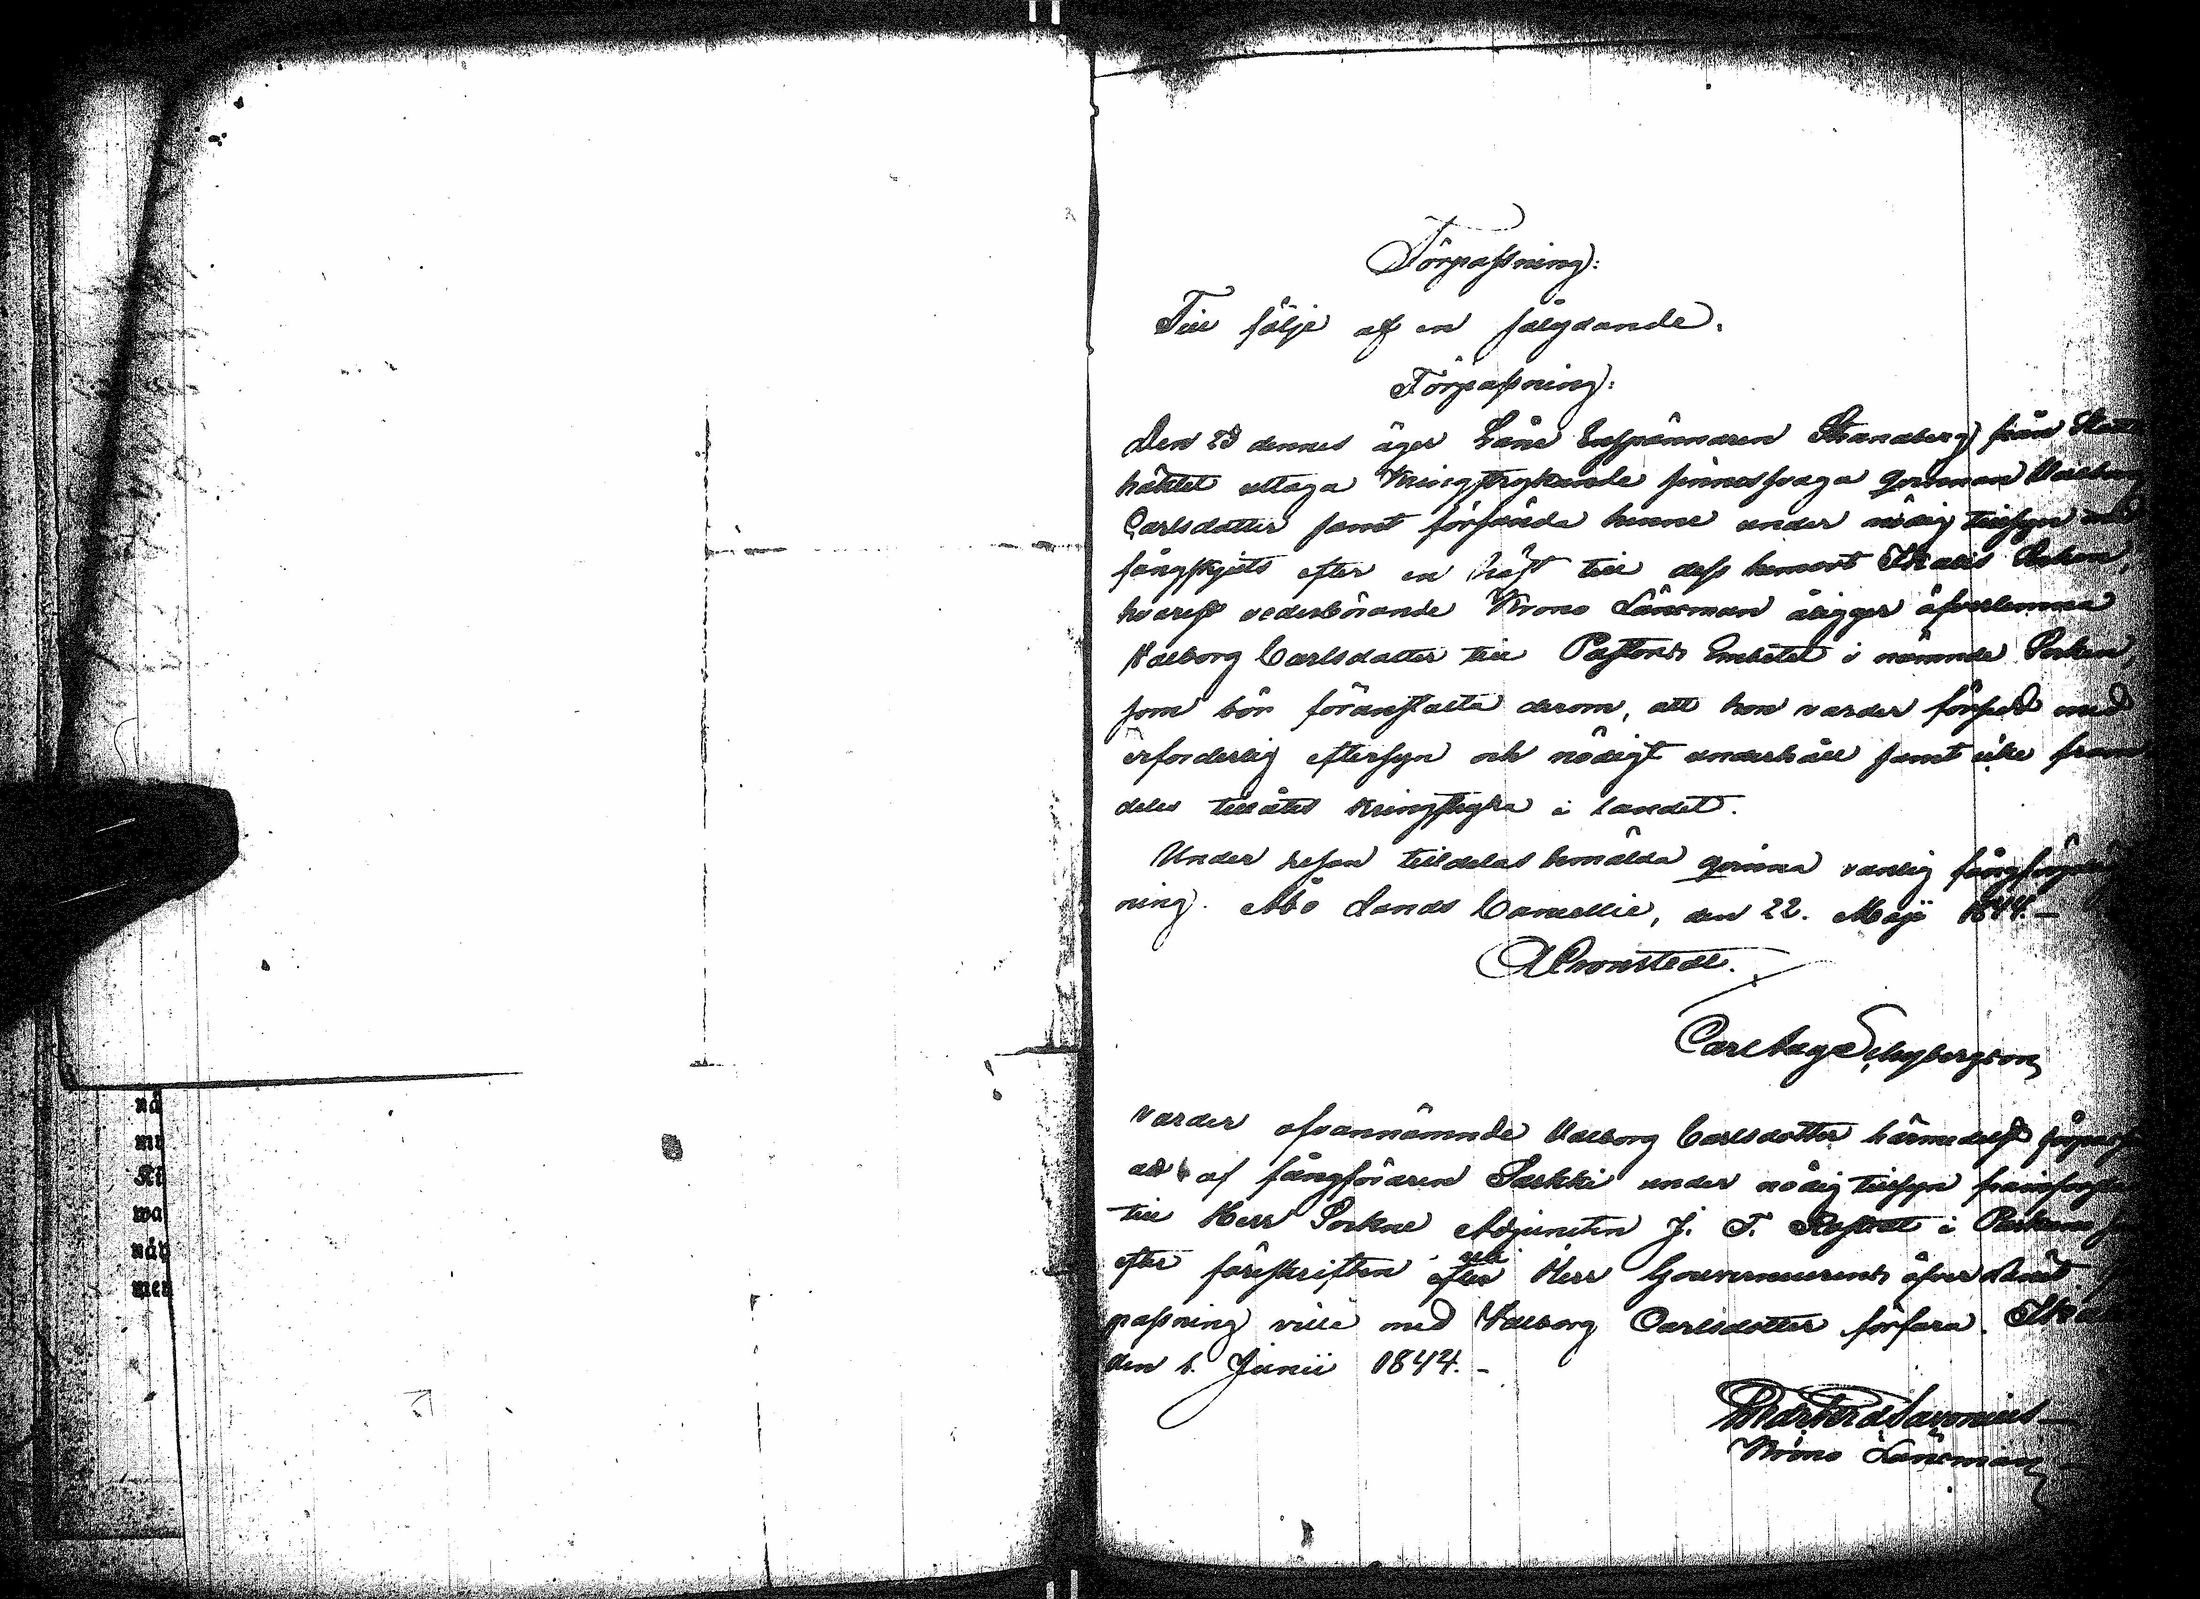 Förpassning:
Till följe af en följdande.
Förpassning:
Den 23 dennes äger Läns Enspännaren Strandberg från
häktet uttaga kringstrykande sinnessvaga qvinnan Walborg
Carlsdotter samt förpassa henne under nödig tillsyn med
fångskjuts efter en häst till dess hemort Ikalis Socken,
hvarest vederbörande Krono Länsman åligger öfverlemna
Walborg Carlsdotter till Pastors Embetet i nämnde Socken,
som bör föranstalta derom, att hon varder försedd med
erforderlig eftersyn och nödigt underhåll samt icke fram
deles tillåtes kringstryka i landet.
Under resan tilldelas bemälda qvinna vanlig
ning. Åbo Lands Cancellie, den 22. Maji 1844. –
ACronstedt.
Carl Aug Schybergson
varder ofvannämnde Walborg Carlsdotter härmedelst
att af fångföraren Sarkki under nödig tillsyn
till Herr Sockne Adjuncten J. T. i
efter föreskriften uti Herr Gouverneurens öfver
passning ville med Walborg Carlsdotter förfara.
den 1. Junii 1844. –
Savonius
Krono Länsman
nå
mi
wa
näh
men